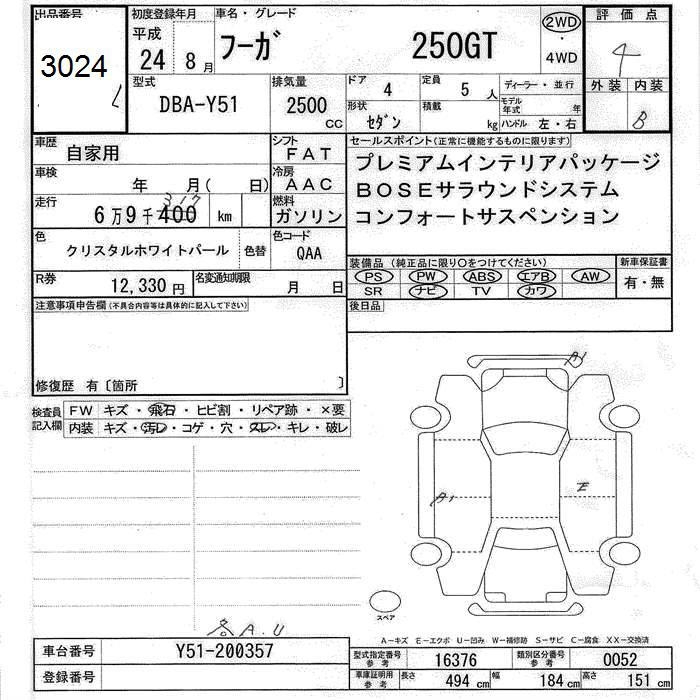 出品番号
3024
初度登録年月
平成
24 8月
車名・グレード
フーガ 250GT
2WD
・
4WD
評価点
4
外装 内装
B
型式
DBA-Y51
排気量
2500
CC
ドア 4
定員 5 人
ディーラー・並行
形状 セダン
積載 kg
モデル年式 年
ハンドル 左・右
車歴 自家用
シフト FAT
車検 年 月( 日)
冷房 AAC
走行 6万9千400 km
317
燃料 ガソリン
色 クリスタルホワイトパール 色替
色コード QAA
R券 12,330円
名変通知期限 月 日
セールスポイント(正常に機能するものに限ります)
プレミアムインテリアパッケージ
BOSEサラウンドシステム
コンフォートサスペンション
装備品(純正品に限り○をつけてください)
PS PW ABS エアB AW
SR ナビ TV カワ
新車保証書
有・無
後日品
注意事項申告欄(不具合内容等は具体的に記入して下さい)
修復歴 有〔箇所 〕
検査員記入欄
FW キズ・飛石・ヒビ割・リペア跡・×要
内装 キズ・汚レ・コゲ・穴・スレ・キレ・破レ
A1
A1
E
スペア
A.U
A-キズ E-エクボ U-凹み W-補修跡 S-サビ C-腐食 XX-交換済
車台番号 Y51-200357
登録番号
型式指定番号参考 16376
類別区分番号参考 0052
車庫証明用参考 長さ 494cm 幅 184cm 高さ 151cm